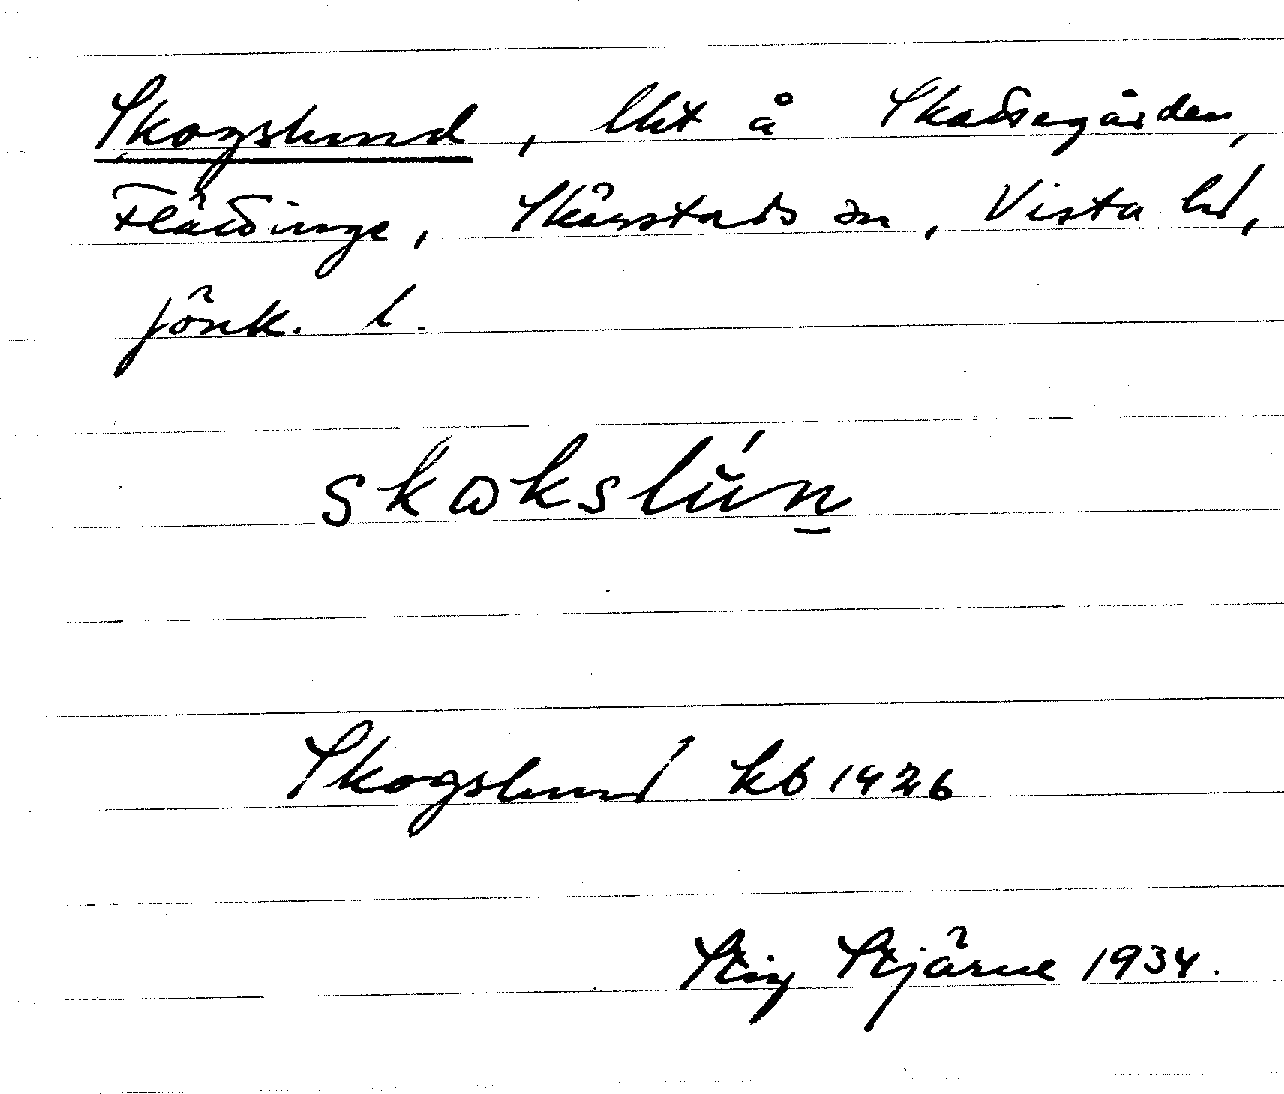 Skogslund, lht å Skattegården,
Flättinge, Skärstads sn, Vista hd,
Jönk. l.
skɷkslún̠
Skogslund kb 1926
Stig Stjärne 1934.